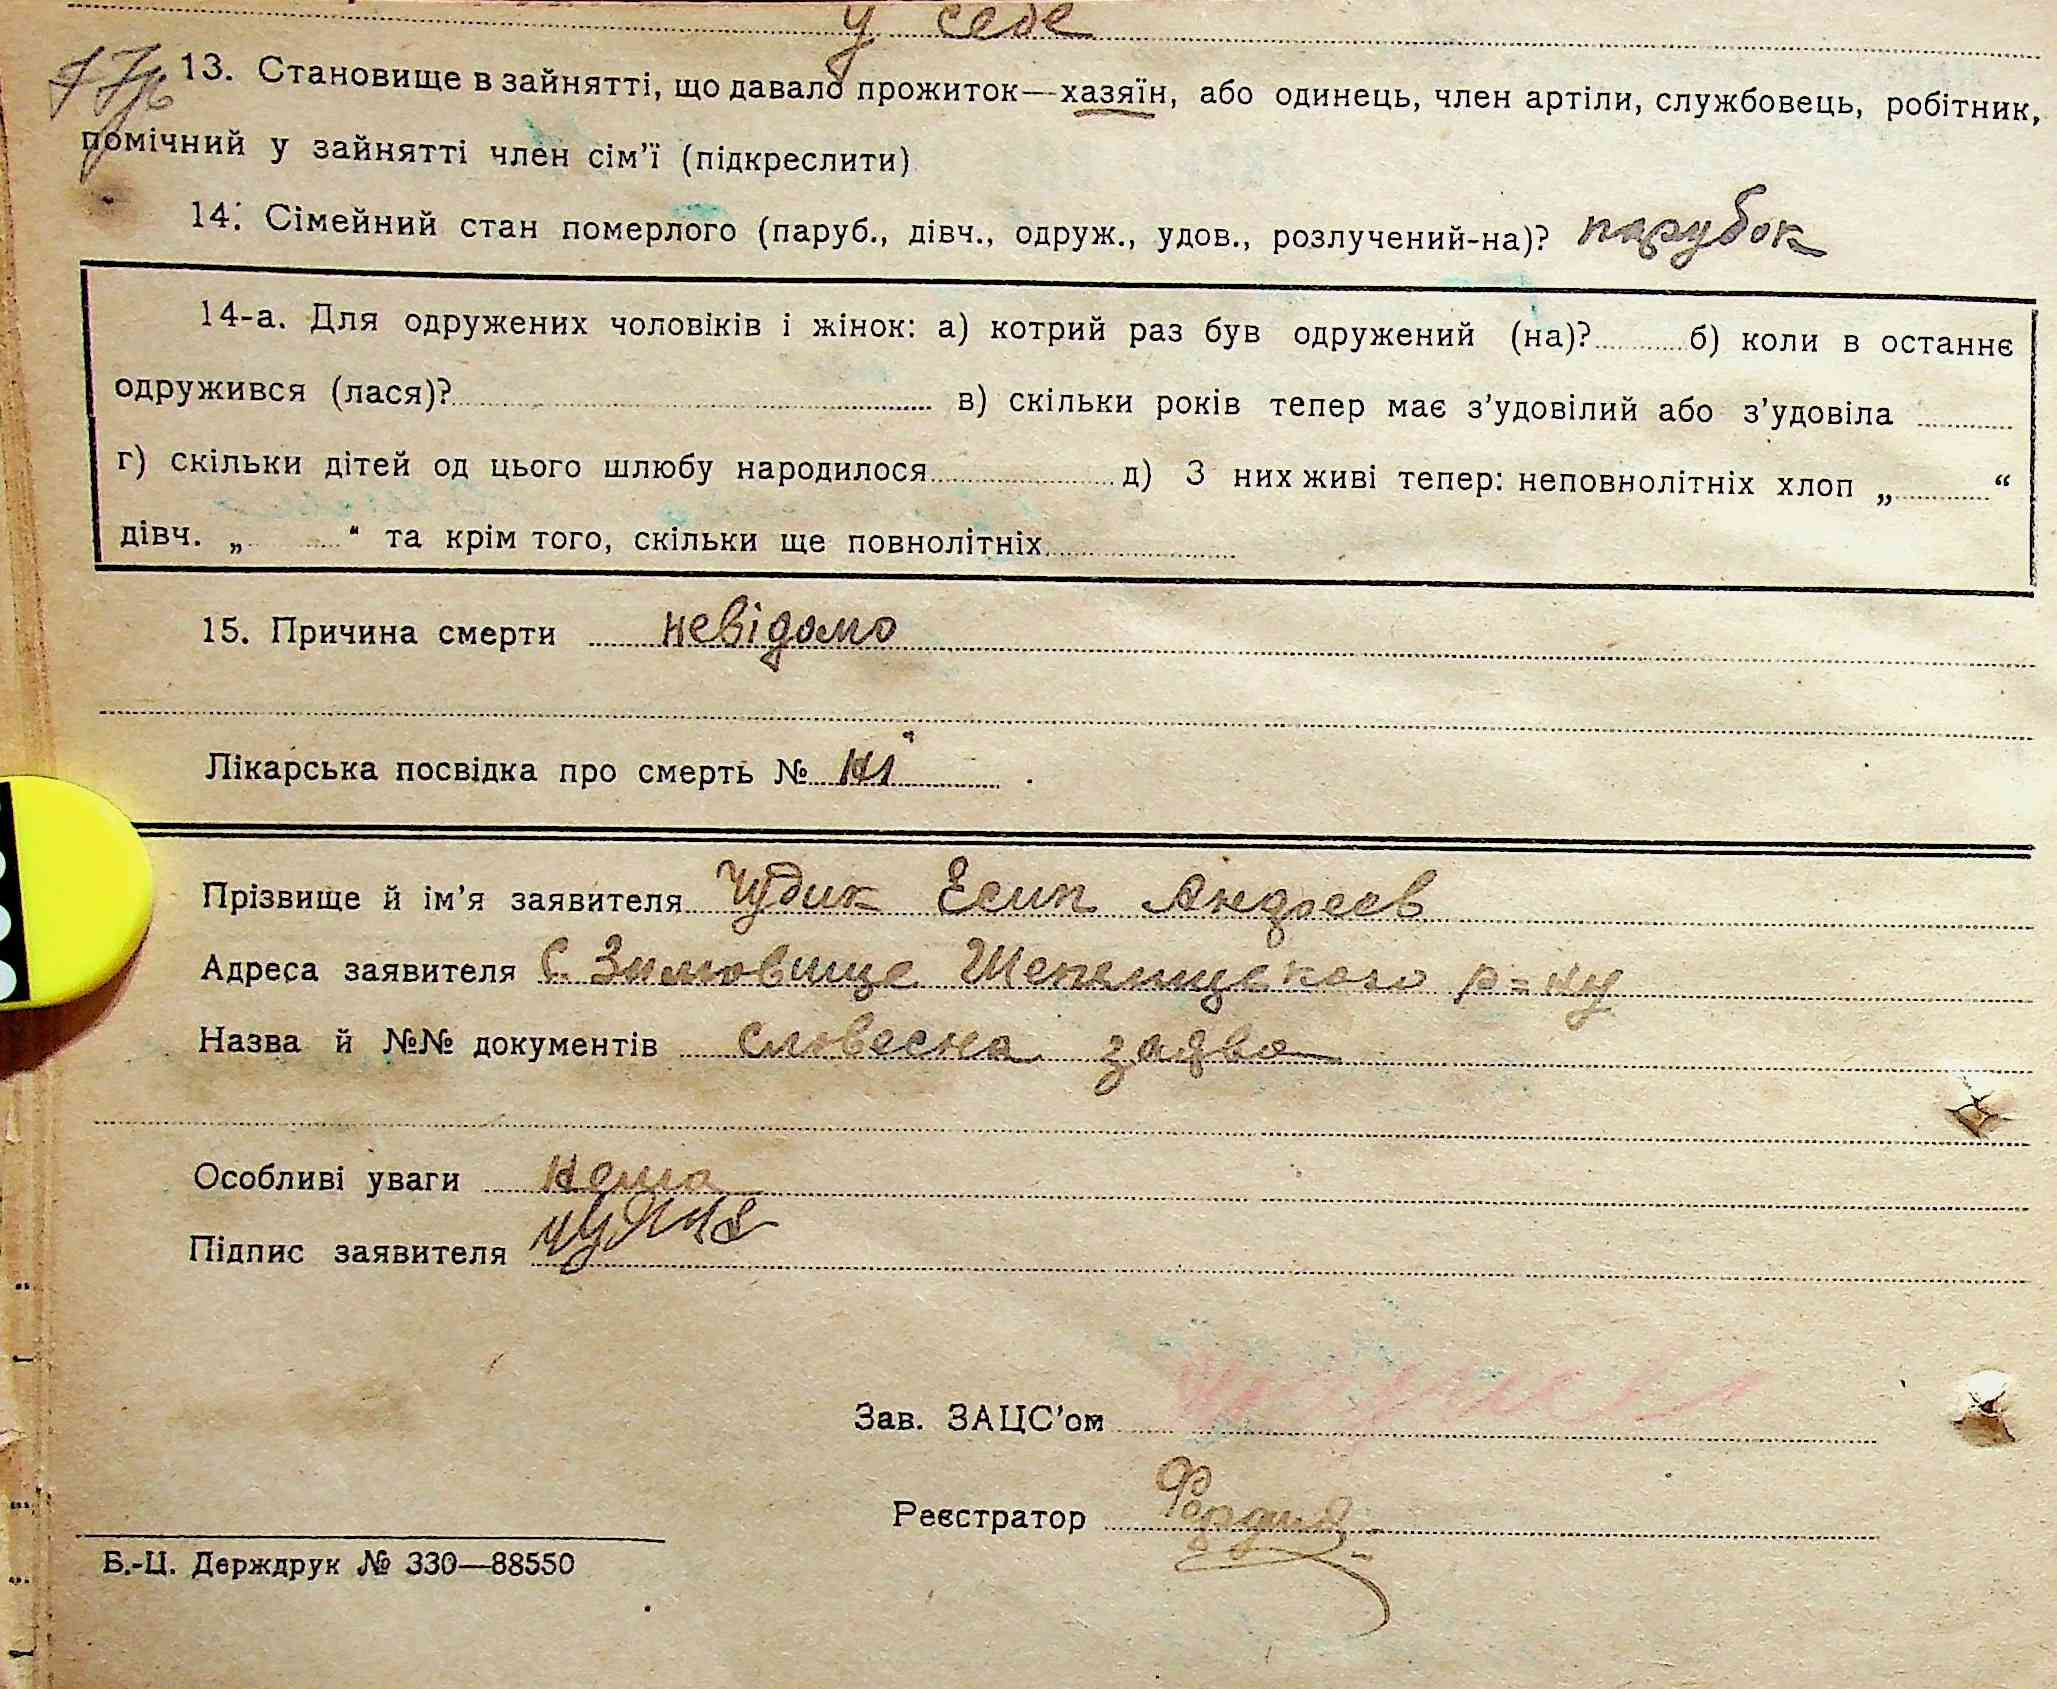 у себе
13. Становище в зайнятті, що давало прожиток—хазяїн, або одинець, член артіли, службовець, робітник,
помічний у зайнятті член сім'ї (підкреслити)
14. Сімейний стан померлого (паруб., дівч., одруж., удов., розлучений-на)? парубок
14-а. Для одружених чоловіків і жінок: а) котрий раз був одружений (на)? б) коли в останнє
одружився (лася)? в) скільки років тепер має з'удовілий або з'удовіла
г) скільки дітей од цього шлюбу народилося д) З них живі тепер: неповнолітніх хлоп „ “
дівч. „ “ та крім того, скільки ще повнолітніх
15. Причина смерти невідомо
Лікарська посвідка про смерть № ні
Прізвище й ім'я заявителя Чудик Есип Андреєв
Адреса заявителя С. Зимовище Шепелицького р=ну
Назва й №№ документів словесна заява
Особливі уваги нема
Підпис заявителя
Зав. ЗАЦС'ом
Реєстратор
Б.-Ц. Держдрук № 330—88550